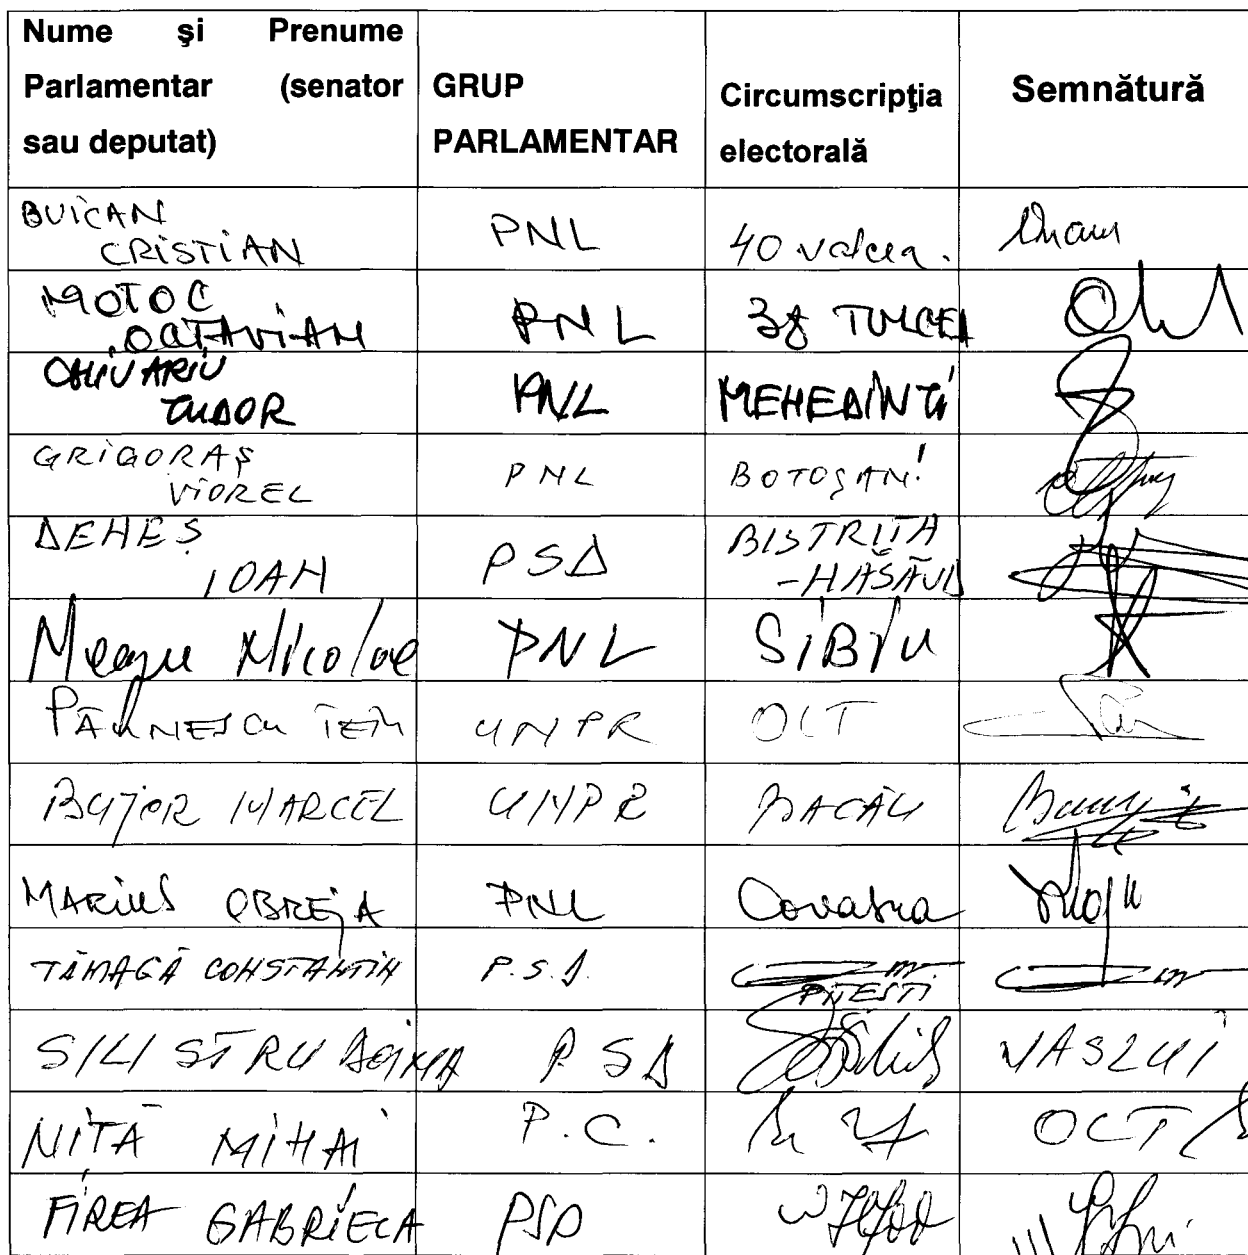 Nume și Prenume
Parlamentar (senator
sau deputat)
GRUP
PARLAMENTAR
Circumscripţia
electorală
Semnătură
BUICAN
CRISTIAN
PNL
40 Valcea.
MOTOC
OCTAVIAN
PNL
38 TULCEA
CHIUARIU
TUDOR
PNL
MEHEDINTI
GRIGORAȘ
VIOREL
PNL
BOTOȘANI
DENEȘ
IOAN
PSD
BISTRITA
-NĂSĂUD
Neagu Nicolae
PNL
SIBIU
PÂLNESCU TEIU
UNPR
OLT
BUJOR MARCEL
UNPR
BACĂU
MARIUS OBREJA
PNL
Covasna
TĂMAGĂ CONSTANTIN
P.S.D.
PITESTI
SILISTRU DOINA
PSD
VASLUI
NITĂ MIHAI
P.C.
OLT
FIREA GABRIELA
PSD